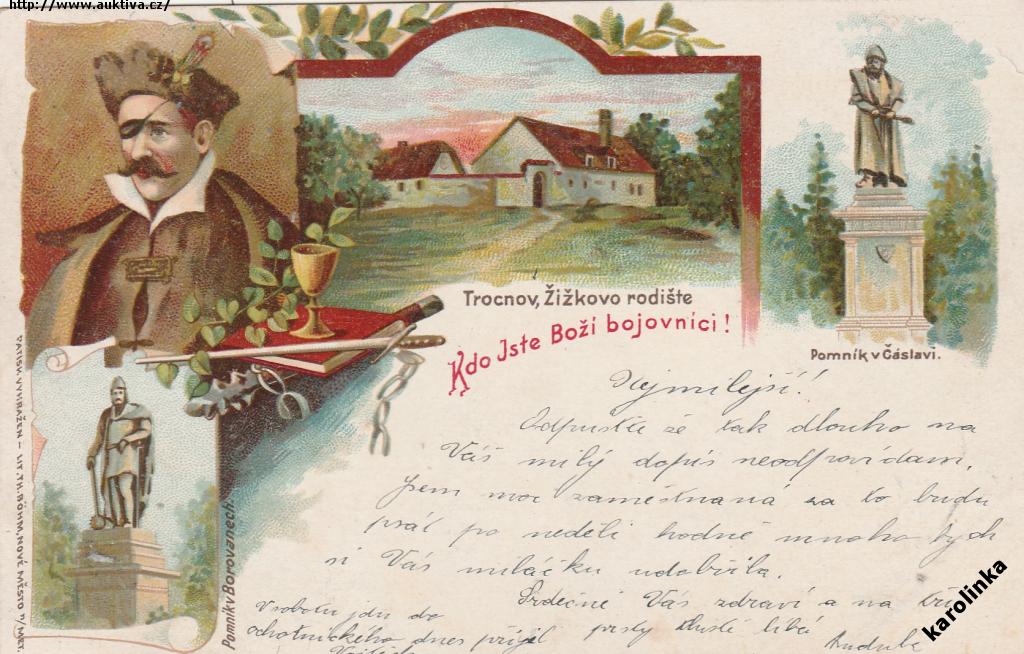 http://www.auktiva.cz/
Trocnov, Žižkovo rodiště
Kdo Jste Boží bojovníci!
Pomník v Čáslavi.
Pomník v Borovanech.
PATISK VYHRAŽEN – LIT. TH. BÖHM, NOVÉ MĚSTO n/MET.
Nejmilejší!
Odpusťte že tak dlouho na
Váš milý dopis neodpovídám,
jsem moc zaměstnaná za to budu
psát po neděli hodně mnoho bych
si Vás miláčku udobřila.
Srdečně Vás zdraví a na
V sobotu jdu do
ochotnického dnes přijel
prsty tlusté líbá
karolinka